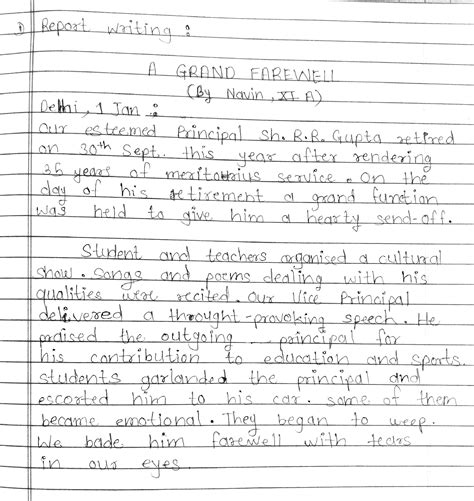 1) Report Writing :
A GRAND FAREWELL
(By Navin, XI A)
Delhi, 1 Jan :
Our esteemed Principal Sh. R.R. Gupta retired
on 30th Sept. this year after rendering
35 years of meritorius service. On the
day of his retirement a grand function
was held to give him a hearty send-off.
Student and teachers organised a cultural
show. Songs and poems dealing with his
qualities were recited. Our Vice Principal
delivered a throught-provoking speech. He
praised the outgoing principal for
his contribution to education and sports.
students garlanded the principal and
escorted him to his car. some of them
became emotional. They began to weep.
We bade him farewell with tears
in our eyes.